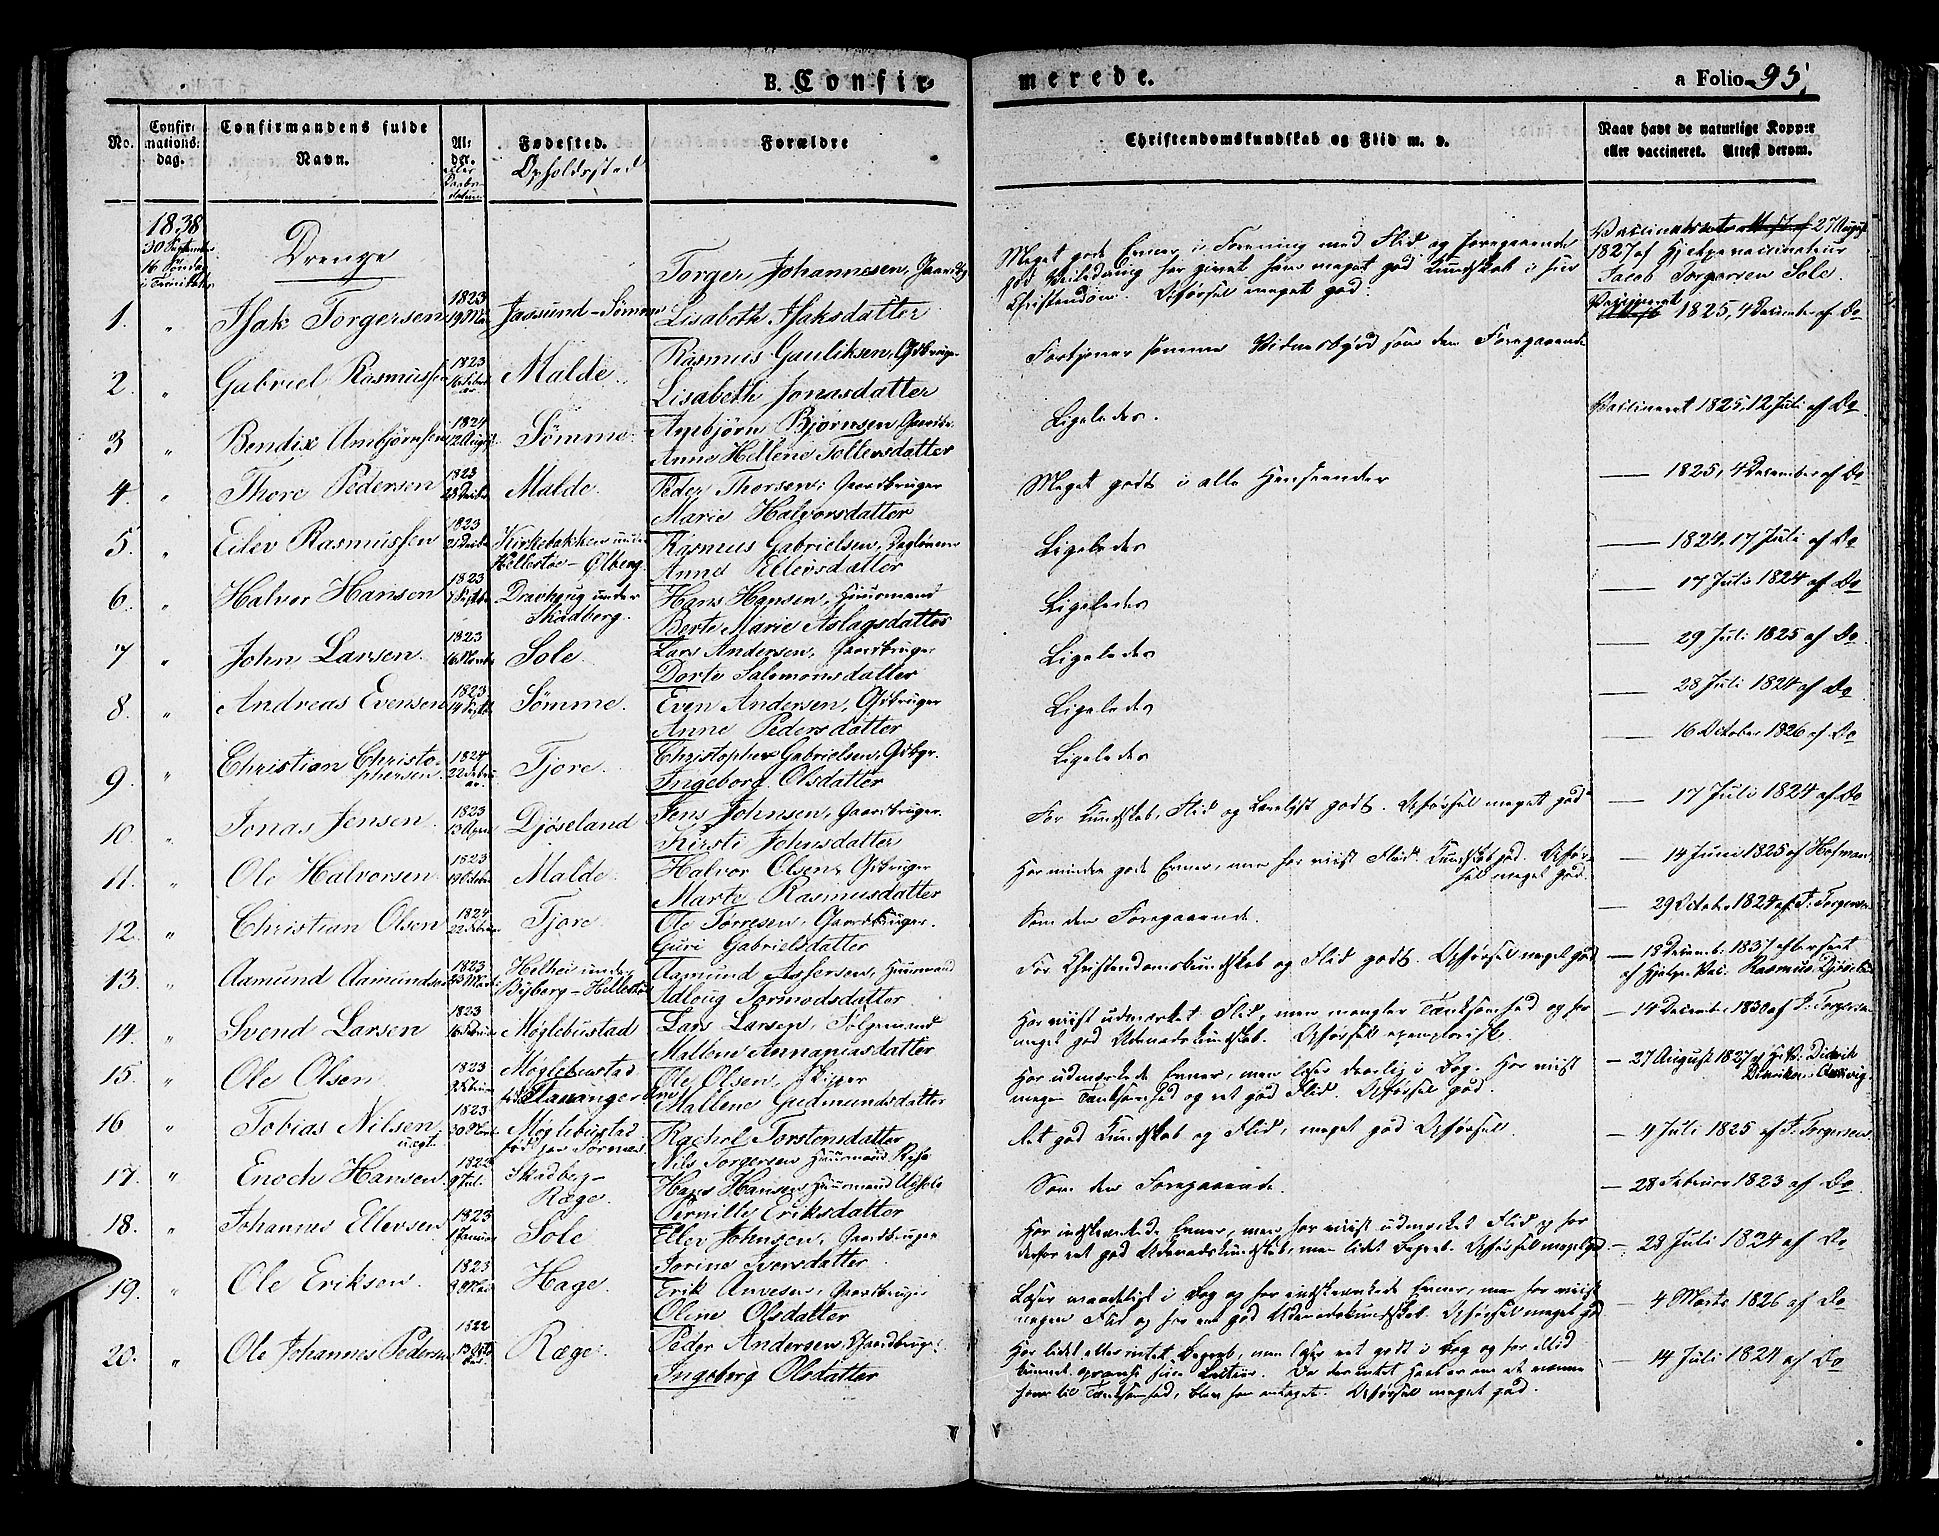 B. Confir-
merede.
a Folio 95,
No.
Confir-
mations-
dag.
Confirmandens fulde
Navn.
Al-
der.
eller
Daabs-
datum
Fødested.
Opholdssted
Forældre
Christendomskundskab og Flid m. v.
Naar havt de naturlige Kopper
eller vaccineret. Attest derom.
1838
30 September
16 Søndag
i Trinitatis
Drenge
1. " Isak Torgersen 1823 19 Mai Jaasund - Sømme Torger Johannesen, Gaardbr
Lisabeth Isaksdatter
Meget gode Evner, i Forening med Flid og foregaaende
god Veiledning har givet ham meget god Kundskab i sin
Christendom. Opførsel meget god.
27 August
1827 af Hjelpevaccinateur
Jacob Torgersen Sole.
2 " Gabriel Rasmussen 1823 Malde Rasmus Gauliksen, Gdbruger
Lisabeth Jonasdatter
Fortjener samme Vidnesbyrd som den Foregaaende
Vaccineret 1825, 4 December af Do
3 " Bendix Ambjørnsen 1824 12 August Sømme Ambjørn Bjørnsen, Gaardbr.
Anne Hellene Tollevsdatter
Ligeledes.
Vaccineret 1825, 12 Juli af Do
4 " Thore Pedersen 1823 Malde. Peder Thorsen, Gaardbruger
Marie Halvorsdatter
Meget godt i alle Henseender
— 1825, 4 December af Do
5. " Eilev Rasmussen 1823 Kirkebakken under
Hellestøe - Ølberg Rasmus Gabrielsen, Daglønner
Anne Ellevsdatter
Ligeledes
— 1824, 17 Juli af Do
6. " Halvor Hansen 1823 under
Skadberg. Hans Hansen, Huusmand
Berte Marie Aslagsdatter
Ligeledes
— 17 Juli 1824 af Do
7 " John Larsen. 1823 Sole. Lars Andersen, Gaardbruger
Dorte Salomonsdatter
Ligeledes
— 29 Juli 1825 af Do
8. " Andreas Evensen 1823 14 Septb Sømme. Even Andersen, Gdbruger
Anne Pedersdatter
Ligeledes
— 28 Juli 1824 af Do
9. " Christian Christo-
phersen. 1824 22 Febru-
ar. Tjore. Christopher Gabrielsen, Gdbgr.
Ingeborg Olsdatter
Ligeledes
— 16 October 1826 af Do
10. " Jonas Jensen 1823 13 April Djøseland Jens Johnsen, Gaardbruger.
Kirsti Johnsdatter
For Kundskab, Flid og Lovlyst godt. Opførsel meget god
— 17 Juli 1824 af Do
11. " Ole Halvorsen 1823 Malde. Halvor Olsen, Gdbruger
Marte Rasmusdatter
Har mindre gode Evner, men har viist Flid. Kundskab god. Opfør-
sel meget god.
— 14 Juni 1825 af Hofman
12. " Christian Olsen 1824 22 Febru Tjore. Ole Tørresen, Gaardbruger.
Guri Gabrielsdatter
Som den Foregaaende.
— 29 Octob. 1824 af J. Torgersen
13. " Aamund Aamundsen 1823 Helhei under
Byberg - Hellestøe Aamund Assersen, Huusmand
Adloug Tormodsdatter
For Christendomskundskab og Flid godt. Opførsel meget god
— 18 Decemb. 1837
af Hjelpe Vac. Rasmus Djøseland
14. " Svend Larsen 1823 Møglebustad Lars Larsen,
Mallene Annaniasdatter
Har viist udmærket Flid, men mangler Tænksomhed og har
meget god Udenadskundskab. Opførsel exemplarisk.
— 14 December 1830 af J. Torgersen
15. " Ole Olsen 1823 Møglebustad
Stavanger Ole Olsen, Skipper
Mallene Gudmundsdatter
Har udmærkede Evner, men læser daarlig i Bog. Har viist
megen Tænksomhed og ret god Flid. Opførsel god.
— 27 August 1827
16 " Tobias Nilsen,
uægt. 1823 Møglebustad
Rachel Torstensdatter
Nils Torgersen Huusmand
Ret god Kundskab og Flid, meget god Opførsel.
— 4 Juli 1825 af J. Torgersen
17. " Enoch Hansen 1822 9 Jul. Skadberg-
Ræge. Hans Hansen Huusmand
Pernille Eriksdatter
Som den Foregaaende.
— 28 Februar 1823 af Do
18. " Johannes Ellevsen 1823 Januar Sole. Ellev Johnsen, Gaardbruger
Jorine Iversdatter
Har indskrænkede Evner, men har viist udmærket Flid og har
derfor ret god Udenadskundskab, men lidet Begreb. Opførsel meget god
— 28 Juli 1824 af Do
19. " Ole Eriksen. 1823 Mai Hage. Erik Anvesen, Gaardbruger
Oline Olsdatter
Læser maadeligt i Bog og har indskrænkede Evner, men har viist
megen Flid og har ret god Udenadskundskab. Opførsel meget god
— 4 Marts 1826 af Do
20. " Ole Johannes Pedersen 1822 Ræge. Peder Andersen, Gaardbruger
Ingeborg Olsdatter
Har lidet eller intet Begreb, men læser ret godt i Bog og har Flid
Opførsel meget god.
— 14 Juli 1824 af Do